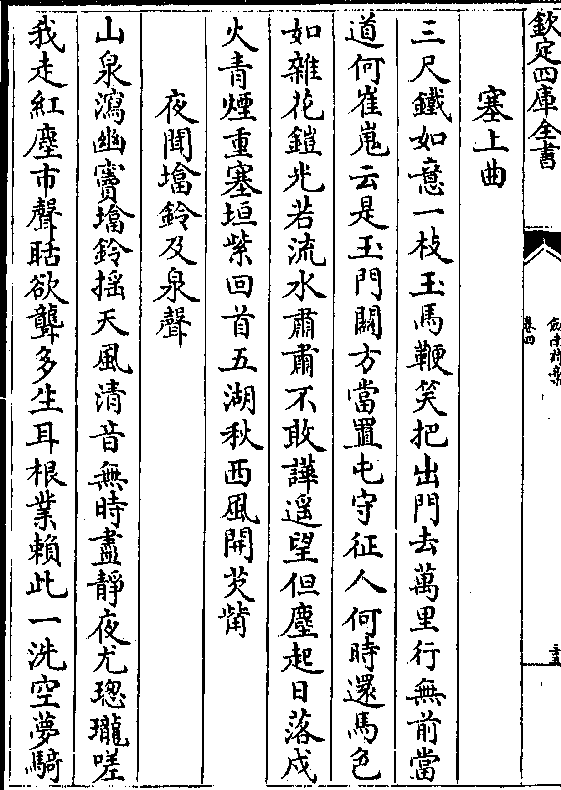 欽定四庫全書
劍南詩稾
卷四
三五
塞上曲
三尺鐵如意一枝玉馬鞭笑把出門去萬里行無前當
道何崔嵬云是玉門關方當置屯守征人何時還馬色
如雜花鎧光若流水肅肅不敢譁遥望但塵起日落戍
火青煙重塞垣紫回首五湖秋西風開芡觜
夜聞塔鈴及泉聲
山泉瀉幽竇塔鈴揺天風清音無時盡靜夜尤璁瓏嗟
我走紅塵市聲聒欲聾多生耳根業賴此一洗空夢騎